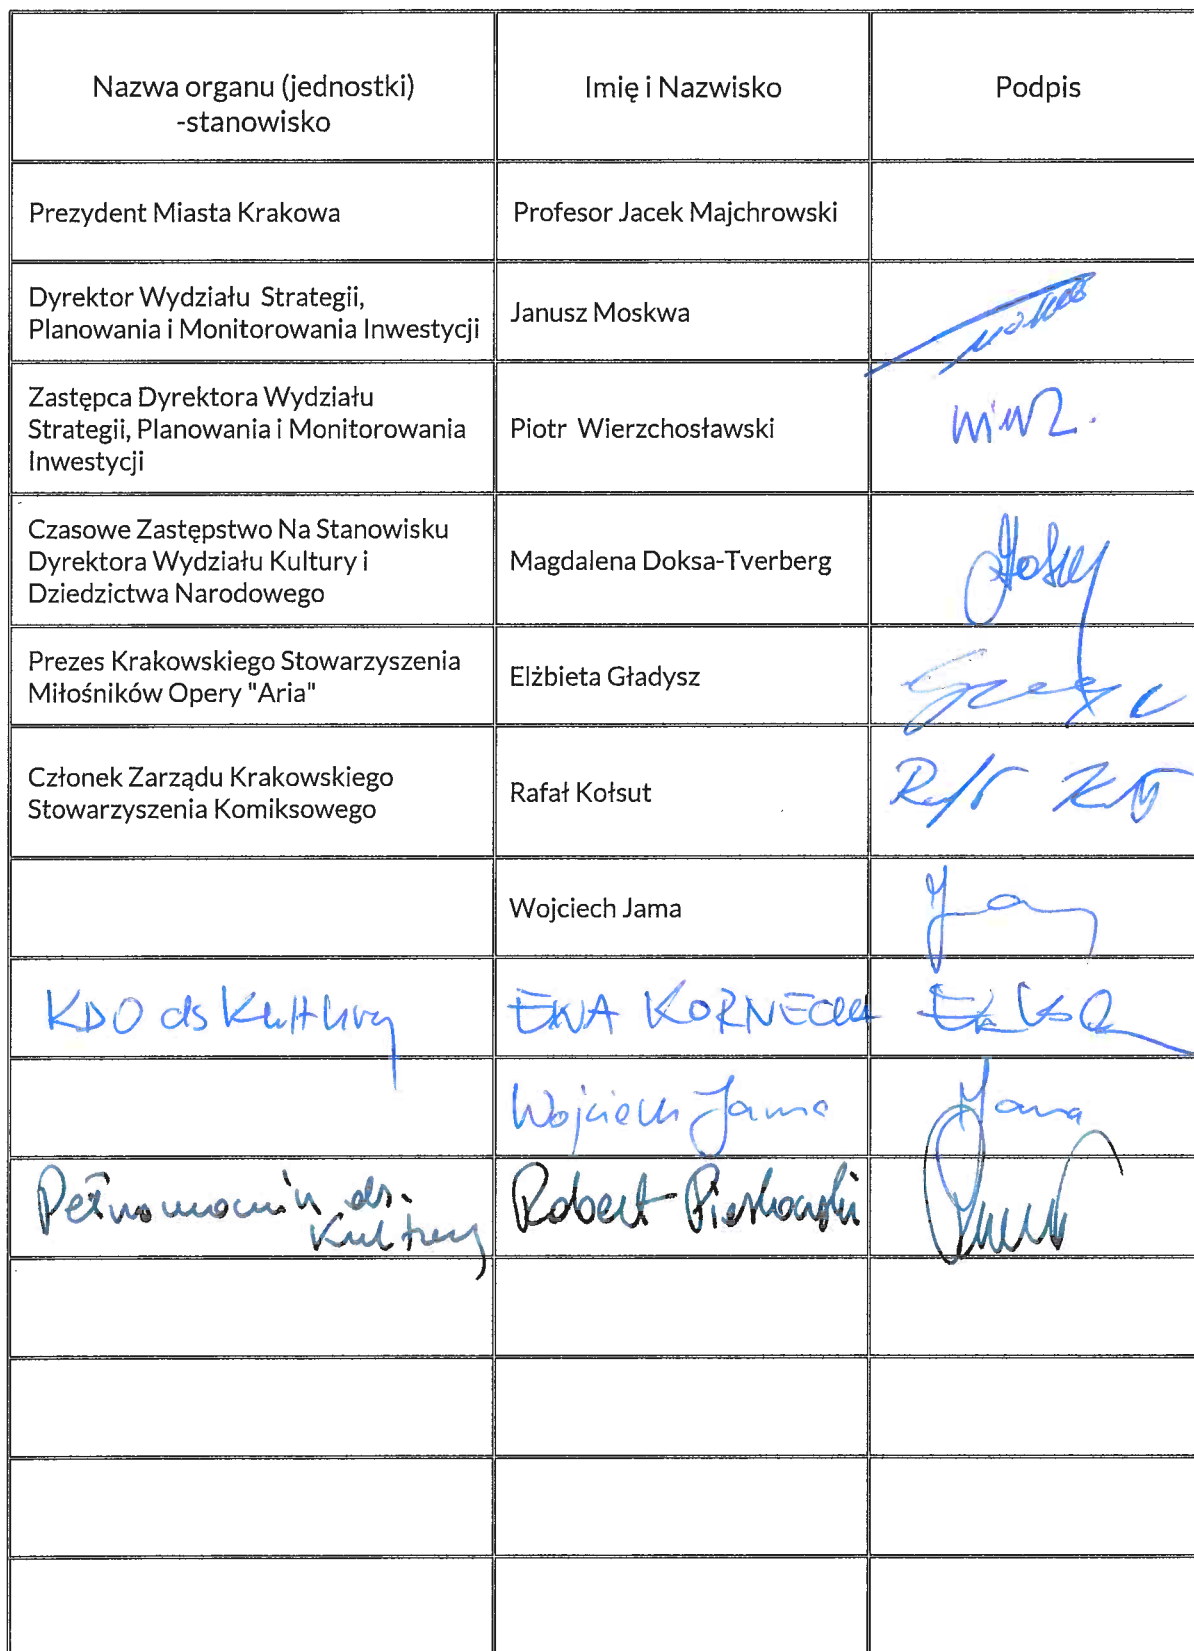 Nazwa organu (jednostki)
-stanowisko
Imię i Nazwisko
Podpis
Prezydent Miasta Krakowa
Profesor Jacek Majchrowski
Dyrektor Wydziału Strategii,
Planowania i Monitorowania Inwestycji
Janusz Moskwa
Zastępca Dyrektora Wydziału
Strategii, Planowania i Monitorowania
Inwestycji
Piotr Wierzchosławski
Czasowe Zastępstwo Na Stanowisku
Dyrektora Wydziału Kultury i
Dziedzictwa Narodowego
Magdalena Doksa-Tverberg
Prezes Krakowskiego Stowarzyszenia
Miłośników Opery "Aria"
Elżbieta Gładysz
Członek Zarządu Krakowskiego
Stowarzyszenia Komiksowego
Rafał Kołsut
Wojciech Jama
KDO ds Kultury
EWA KORNECKA
Wojciech Jama
Jama
Pełnomocnik ds.
Kultury
Robert Piaskowski